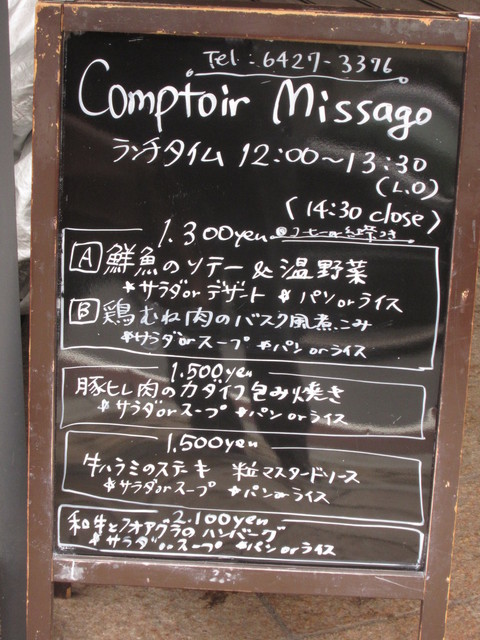 Tel : 6427-3376
Comptoir Missago
ランチタイム 12:00～13:30
(L.O)
(14:30 close)
1.300yen
A 鮮魚のソテー & 温野菜
*サラダ or デザート *パン or ライス
B 鶏むね肉のバスク風煮こみ
*サラダ or スープ *パン or ライス
1.500yen
豚ヒレ肉のカダイフ包み焼き
*サラダ or スープ *パン or ライス
1.500yen
牛ハラミのステーキ 粒マスタードソース
*サラダ or スープ *パン or ライス
2.100yen
和牛とフォアグラのハンバーグ
*サラダ or スープ *パン or ライス